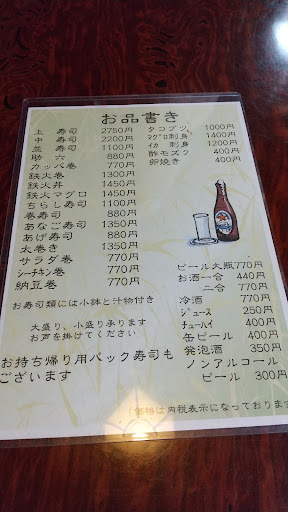 お品書き
上 寿司 2750円
中 寿司 2200円
並 寿司 1100円
助 六 880円
カッパ巻 770円
鉄火巻 1300円
鉄火丼 1450円
鉄火マグロ 1450円
ちらし寿司 1100円
巻寿司 880円
あなご寿司 1350円
あげ寿司 880円
太巻き 1350円
サラダ巻 770円
シーチキン巻 770円
納豆巻 770円
お寿司類には小鉢と汁物付き
大盛り、小盛り承ります
お声を掛けてください
お持ち帰り用パック寿司も
ございます
タコブツ 1000円
マグロ刺身 1400円
イカ 刺身 1200円
酢モズク 400円
卵焼き 400円
ビール大瓶770円
お酒一合 440円
二合 770円
冷酒 770円
ジュース 250円
チューハイ 400円
缶ビール 400円
発泡酒 350円
ノンアルコール
ビール 300円
価格は内税表示になっております